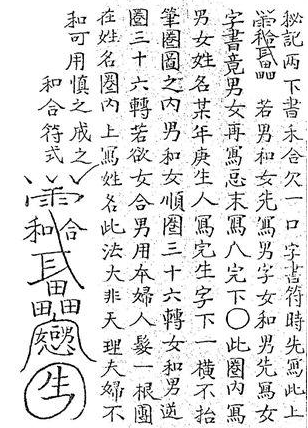 秘記丙下書禾合欠一口字書符時先寫此上
若男和女先寫男字女和男先寫女
字書竟男女再寫忌末寫八完下〇此圈內寫
男女姓名某年庚生人寫完生字下一橫不抬
筆圈圖之內男和女順圈三十六轉女和男逆
圈三十六轉若欲女合男用本婦人髮一根圍
在姓名圈內上寫姓名此法大非天理夫婦不
和可用慎之戒之
和合符式
合
和
生